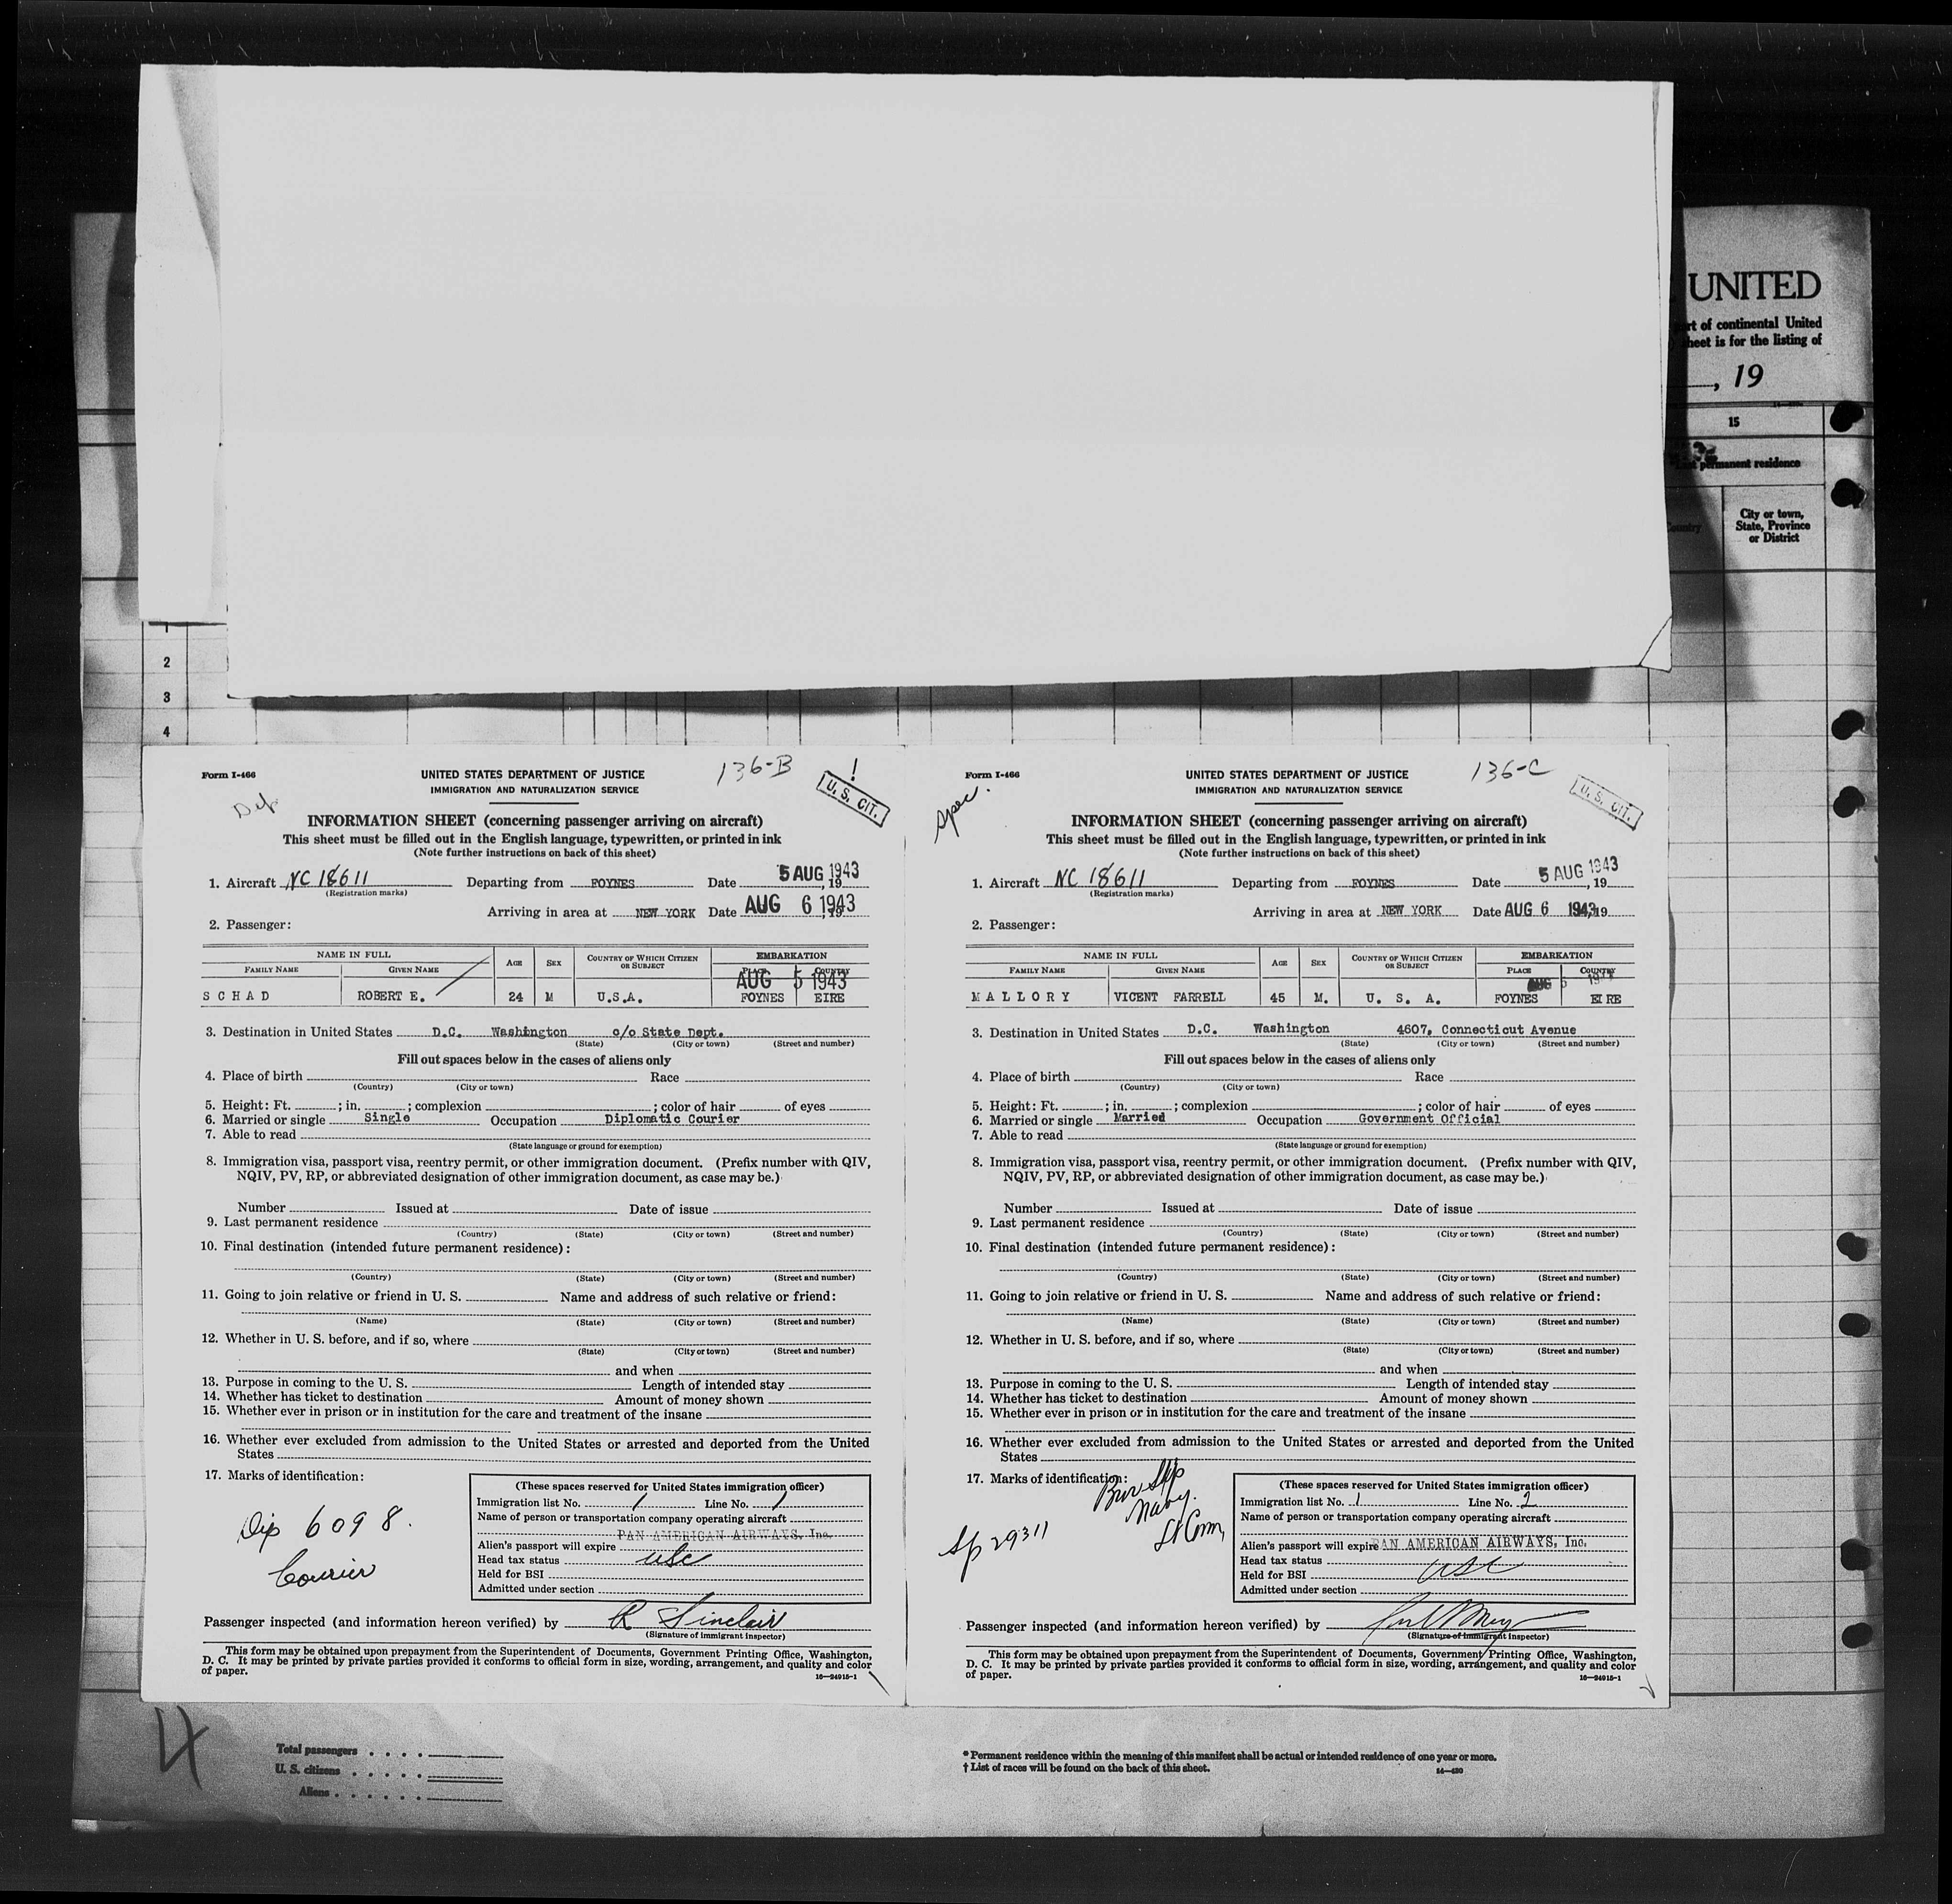 UNITED
rt of continental United
heet is for the listing of
, 19
15
permanent residence
Country
City or town,
State, Province
or District
1
2
3
4
Form I-466
UNITED STATES DEPARTMENT OF JUSTICE
IMMIGRATION AND NATURALIZATION SERVICE
136-B
!
U. S. CIT.
Dip
INFORMATION SHEET (concerning passenger arriving on aircraft)
This sheet must be filled out in the English language, typewritten, or printed in ink
(Note further instructions on back of this sheet)
1. Aircraft NC 18611 Departing from FOYNES Date 5 AUG 1943, 19
(Registration marks)
Arriving in area at NEW YORK Date AUG 6 1943, 19
2. Passenger:
NAME IN FULL AGE SEX COUNTRY OF WHICH CITIZEN OR SUBJECT EMBARKATION
FAMILY NAME GIVEN NAME PLACE COUNTRY
AUG 5 1943
SCHAD ROBERT E. 24 M U.S.A. FOYNES EIRE
3. Destination in United States D.C. Washington c/o State Dept.
(State) (City or town) (Street and number)
Fill out spaces below in the cases of aliens only
4. Place of birth Race
(Country) (City or town)
5. Height: Ft. ; in. ; complexion ; color of hair of eyes
6. Married or single Single Occupation Diplomatic Courier
7. Able to read
(State language or ground for exemption)
8. Immigration visa, passport visa, reentry permit, or other immigration document. (Prefix number with QIV,
NQIV, PV, RP, or abbreviated designation of other immigration document, as case may be.)
Number Issued at Date of issue
9. Last permanent residence
(Country) (State) (City or town) (Street and number)
10. Final destination (intended future permanent residence):
(Country) (State) (City or town) (Street and number)
11. Going to join relative or friend in U. S. Name and address of such relative or friend:
(Name) (State) (City or town) (Street and number)
12. Whether in U. S. before, and if so, where
(State) (City or town) (Street and number)
and when
13. Purpose in coming to the U. S. Length of intended stay
14. Whether has ticket to destination Amount of money shown
15. Whether ever in prison or in institution for the care and treatment of the insane
16. Whether ever excluded from admission to the United States or arrested and deported from the United
States
17. Marks of identification:
Dip 6098.
Courier
(These spaces reserved for United States immigration officer)
Immigration list No. 1 Line No. 1
Name of person or transportation company operating aircraft
PAN AMERICAN AIRWAYS, Inc.
Alien's passport will expire
Head tax status USC
Held for BSI
Admitted under section
Passenger inspected (and information hereon verified) by R Sinclair
(Signature of immigrant inspector)
This form may be obtained upon prepayment from the Superintendent of Documents, Government Printing Office, Washington,
D. C. It may be printed by private parties provided it conforms to official form in size, wording, arrangement, and quality and color
of paper.
16—24915-1
Form I-466
UNITED STATES DEPARTMENT OF JUSTICE
IMMIGRATION AND NATURALIZATION SERVICE
136-C
U. S. CIT.
Spec.
INFORMATION SHEET (concerning passenger arriving on aircraft)
This sheet must be filled out in the English language, typewritten, or printed in ink
(Note further instructions on back of this sheet)
1. Aircraft NC 18611 Departing from FOYNES Date 5 AUG 1943, 19
(Registration marks)
Arriving in area at NEW YORK Date AUG 6 1943, 19
2. Passenger:
NAME IN FULL AGE SEX COUNTRY OF WHICH CITIZEN OR SUBJECT EMBARKATION
FAMILY NAME GIVEN NAME PLACE COUNTRY
AUG 5
MALLORY VICENT FARRELL 45 M. U. S. A. FOYNES EIRE
3. Destination in United States D.C. Washington 4607, Connecticut Avenue
(State) (City or town) (Street and number)
Fill out spaces below in the cases of aliens only
4. Place of birth Race
(Country) (City or town)
5. Height: Ft. ; in. ; complexion ; color of hair of eyes
6. Married or single Married Occupation Government Official
7. Able to read
(State language or ground for exemption)
8. Immigration visa, passport visa, reentry permit, or other immigration document. (Prefix number with QIV,
NQIV, PV, RP, or abbreviated designation of other immigration document, as case may be.)
Number Issued at Date of issue
9. Last permanent residence
(Country) (State) (City or town) (Street and number)
10. Final destination (intended future permanent residence):
(Country) (State) (City or town) (Street and number)
11. Going to join relative or friend in U. S. Name and address of such relative or friend:
(Name) (State) (City or town) (Street and number)
12. Whether in U. S. before, and if so, where
(State) (City or town) (Street and number)
and when
13. Purpose in coming to the U. S. Length of intended stay
14. Whether has ticket to destination Amount of money shown
15. Whether ever in prison or in institution for the care and treatment of the insane
16. Whether ever excluded from admission to the United States or arrested and deported from the United
States
17. Marks of identification:
Navy.
Sp 29311
(These spaces reserved for United States immigration officer)
Immigration list No. 1 Line No. 2
Name of person or transportation company operating aircraft
Alien's passport will expire AN AMERICAN AIRWAYS, Inc.
Head tax status
Held for BSI USC
Admitted under section
Passenger inspected (and information hereon verified) by
(Signature of immigrant inspector)
This form may be obtained upon prepayment from the Superintendent of Documents, Government Printing Office, Washington,
D. C. It may be printed by private parties provided it conforms to official form in size, wording, arrangement, and quality and color
of paper.
16—24915-1
4
Total passengers
U. S. citizens
Aliens
* Permanent residence within the meaning of this manifest shall be actual or intended residence of one year or more.
† List of races will be found on the back of this sheet.